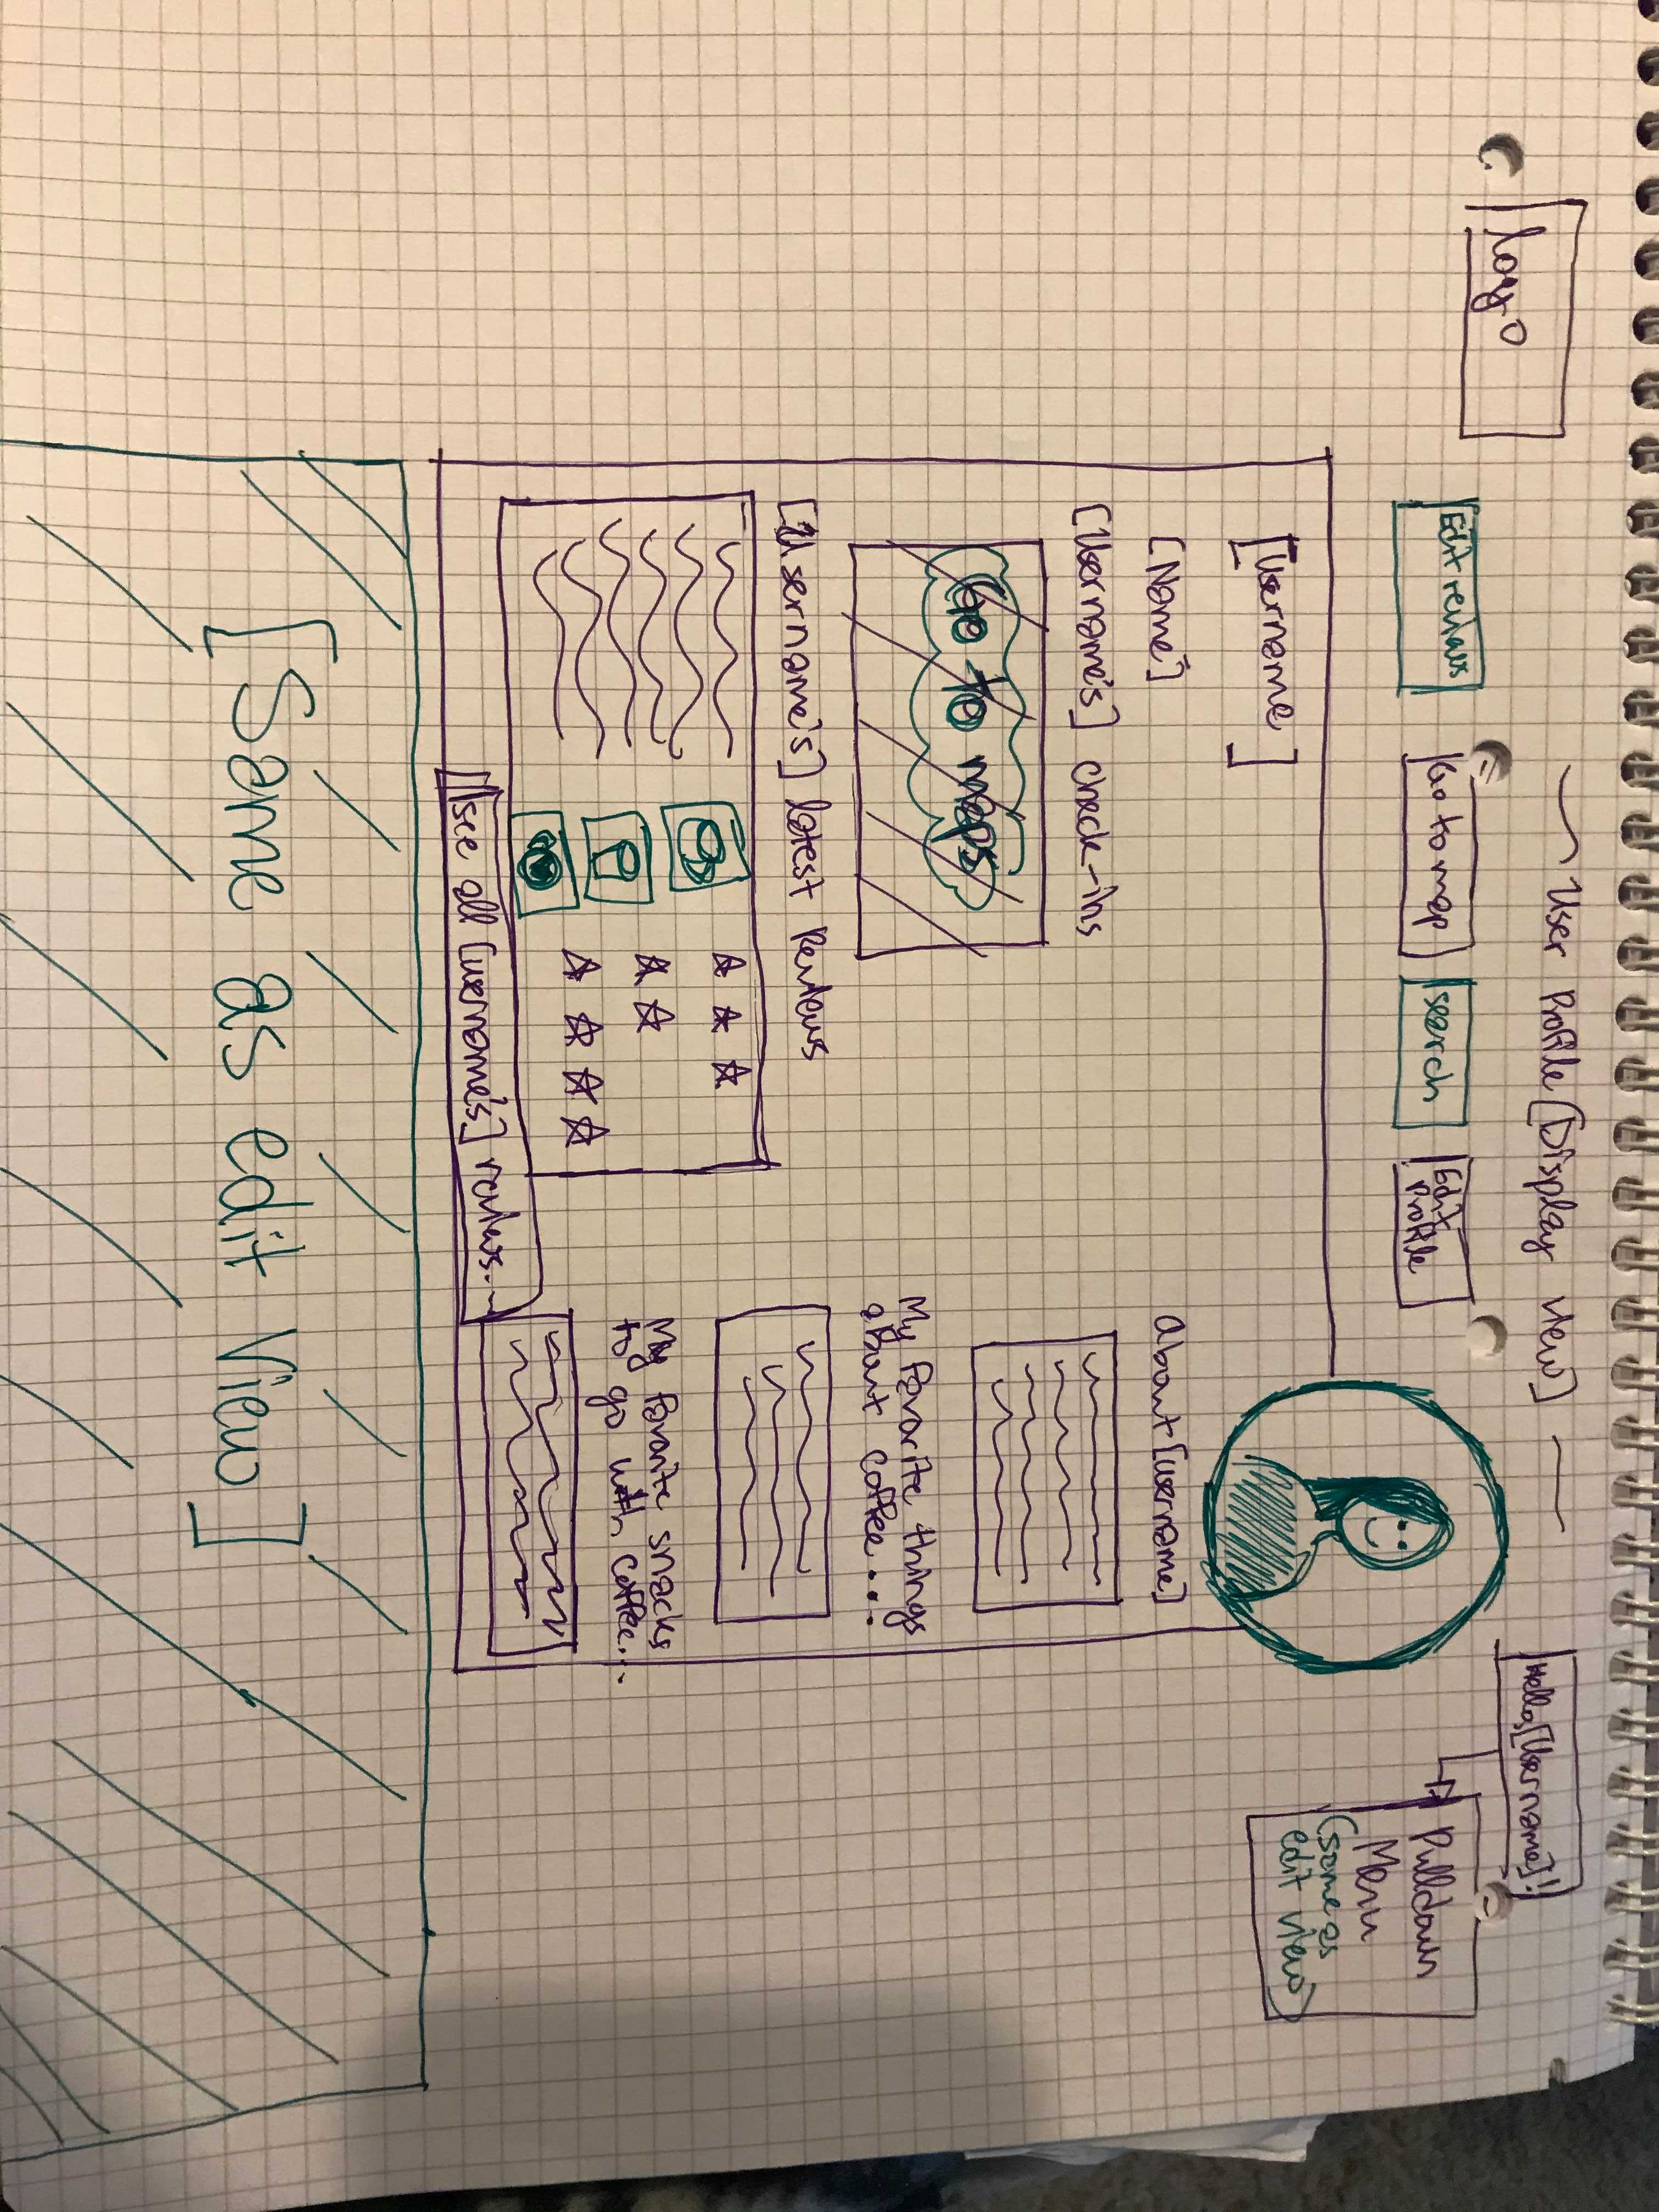 ~ User Profile [Display View] ~
logo
Hello, [Username]!
Edit reviews
Go to map
search
Edit Profile
Pulldown
Menu
(same as
edit view)
[Username]
[Name]
[Username's] check-ins
Go to maps
[Username's] latest Reviews
See all [username's] reviews...
About [username]
My favorite things
about coffee...
My favorite snacks
to go with coffee...
[Same as edit View]